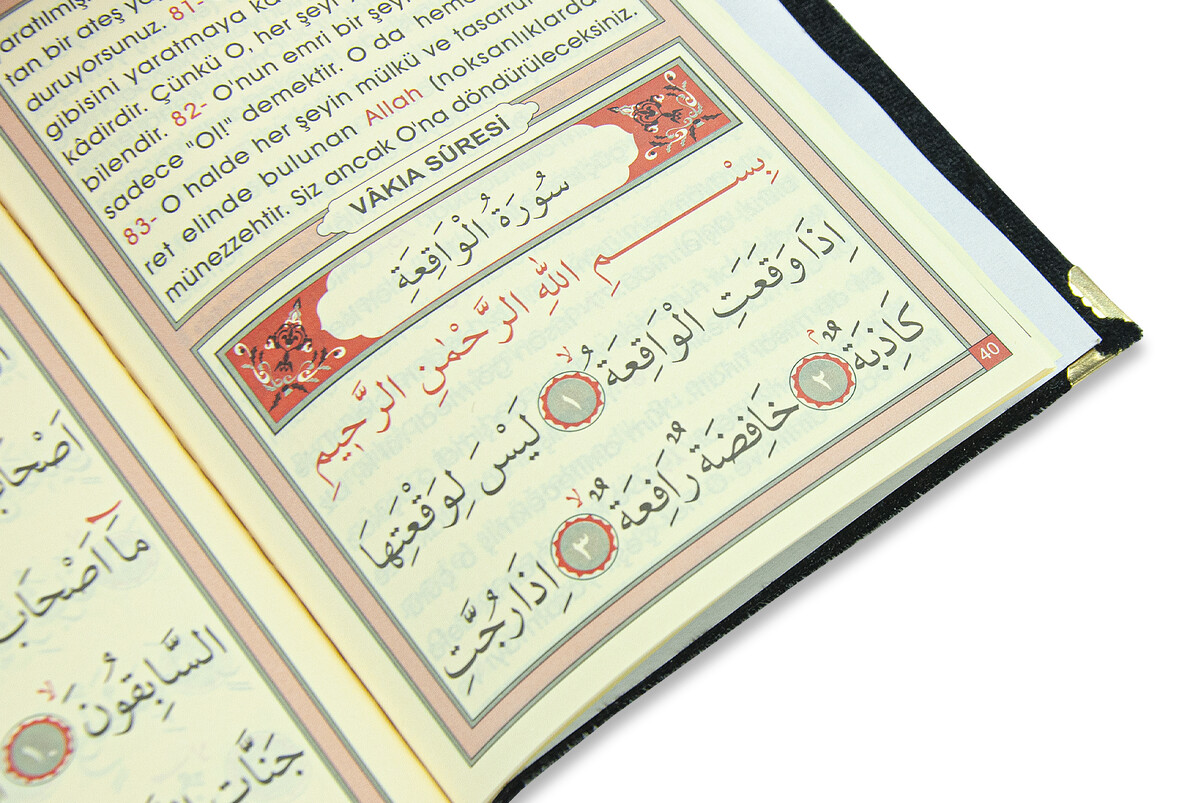 aratılmış
tan bir ateş
duruyorsunuz. 81-
gibisini yaratmaya
kâdirdir. Çünkü O, her şeyi
bilendir. 82- O'nun emri bir şey
sadece "Ol!" demektir. O da heme
83- O halde her şeyin mülkü ve tasarru
ret elinde bulunan Allah (noksanlıklarda
münezzehtir. Siz ancak O'na döndürüleceksiniz.
VÂKIA SÛRESİ
سُورَةُ الْوَاقِعَةِ
بِسْمِ اللهِ الرَّحْمٰنِ الرَّحِيمِ
اِذَا وَقَعَتِ الْوَاقِعَةُ ۙ ﴿١﴾ لَيْسَ لِوَقْعَتِهَا
كَاذِبَةٌ ۘ ﴿٢﴾ خَافِضَةٌ رَافِعَةٌ ۙ ﴿٣﴾ اِذَا رُجَّتِ
40
اَصْحَابُ
مَٓا اَصْحَابُ
السَّابِقُونَ ۙ ﴿١٠﴾
جَنَّاتِ